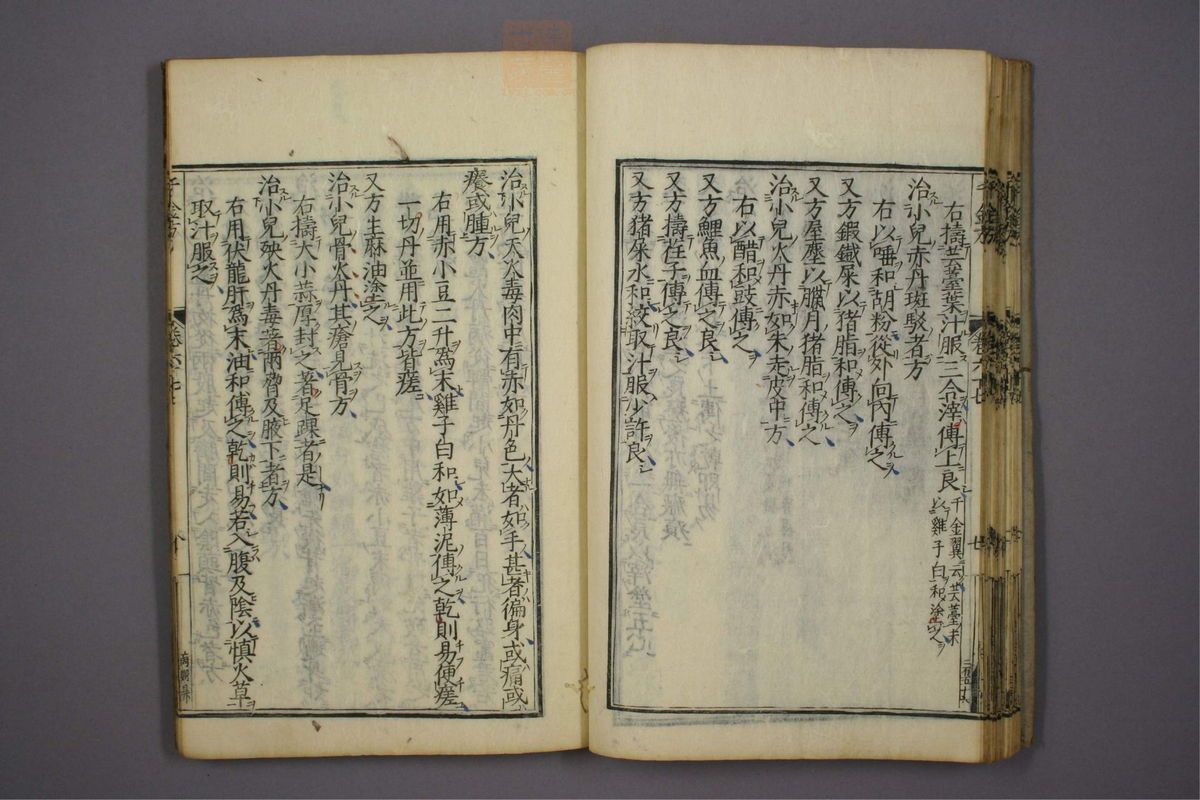 右擣芸薹葉汁服三合滓傅上良 千金翼云芸薹末
以雞子白和塗之
治小兒赤丹斑駁者方
右以唾和胡粉從外向內傅之
又方鍜鐵屎以猪脂和傅之
又方屋塵以臘月猪脂和傅之
治小兒火丹赤如朱走皮中方
右以醋和豉傅之
又方鯉魚血傅之良
又方擣荏子傅之良
又方猪屎水和絞取汁服少許良
治小兒天火毒肉中有赤如丹色大者如手甚者徧身或痛或
癢或腫方
右用赤小豆二升爲末雞子白和如薄泥傅之乾則易便瘥
一切丹並用此方皆瘥
又方生麻油塗之
治小兒骨火丹其瘡見骨方
右擣大小蒜厚封之著足踝者是
治小兒殃火丹毒著兩脅及腋下者方
右用伏龍肝爲末油和傅之乾則易若入腹及陰以慎火草
取汁服之